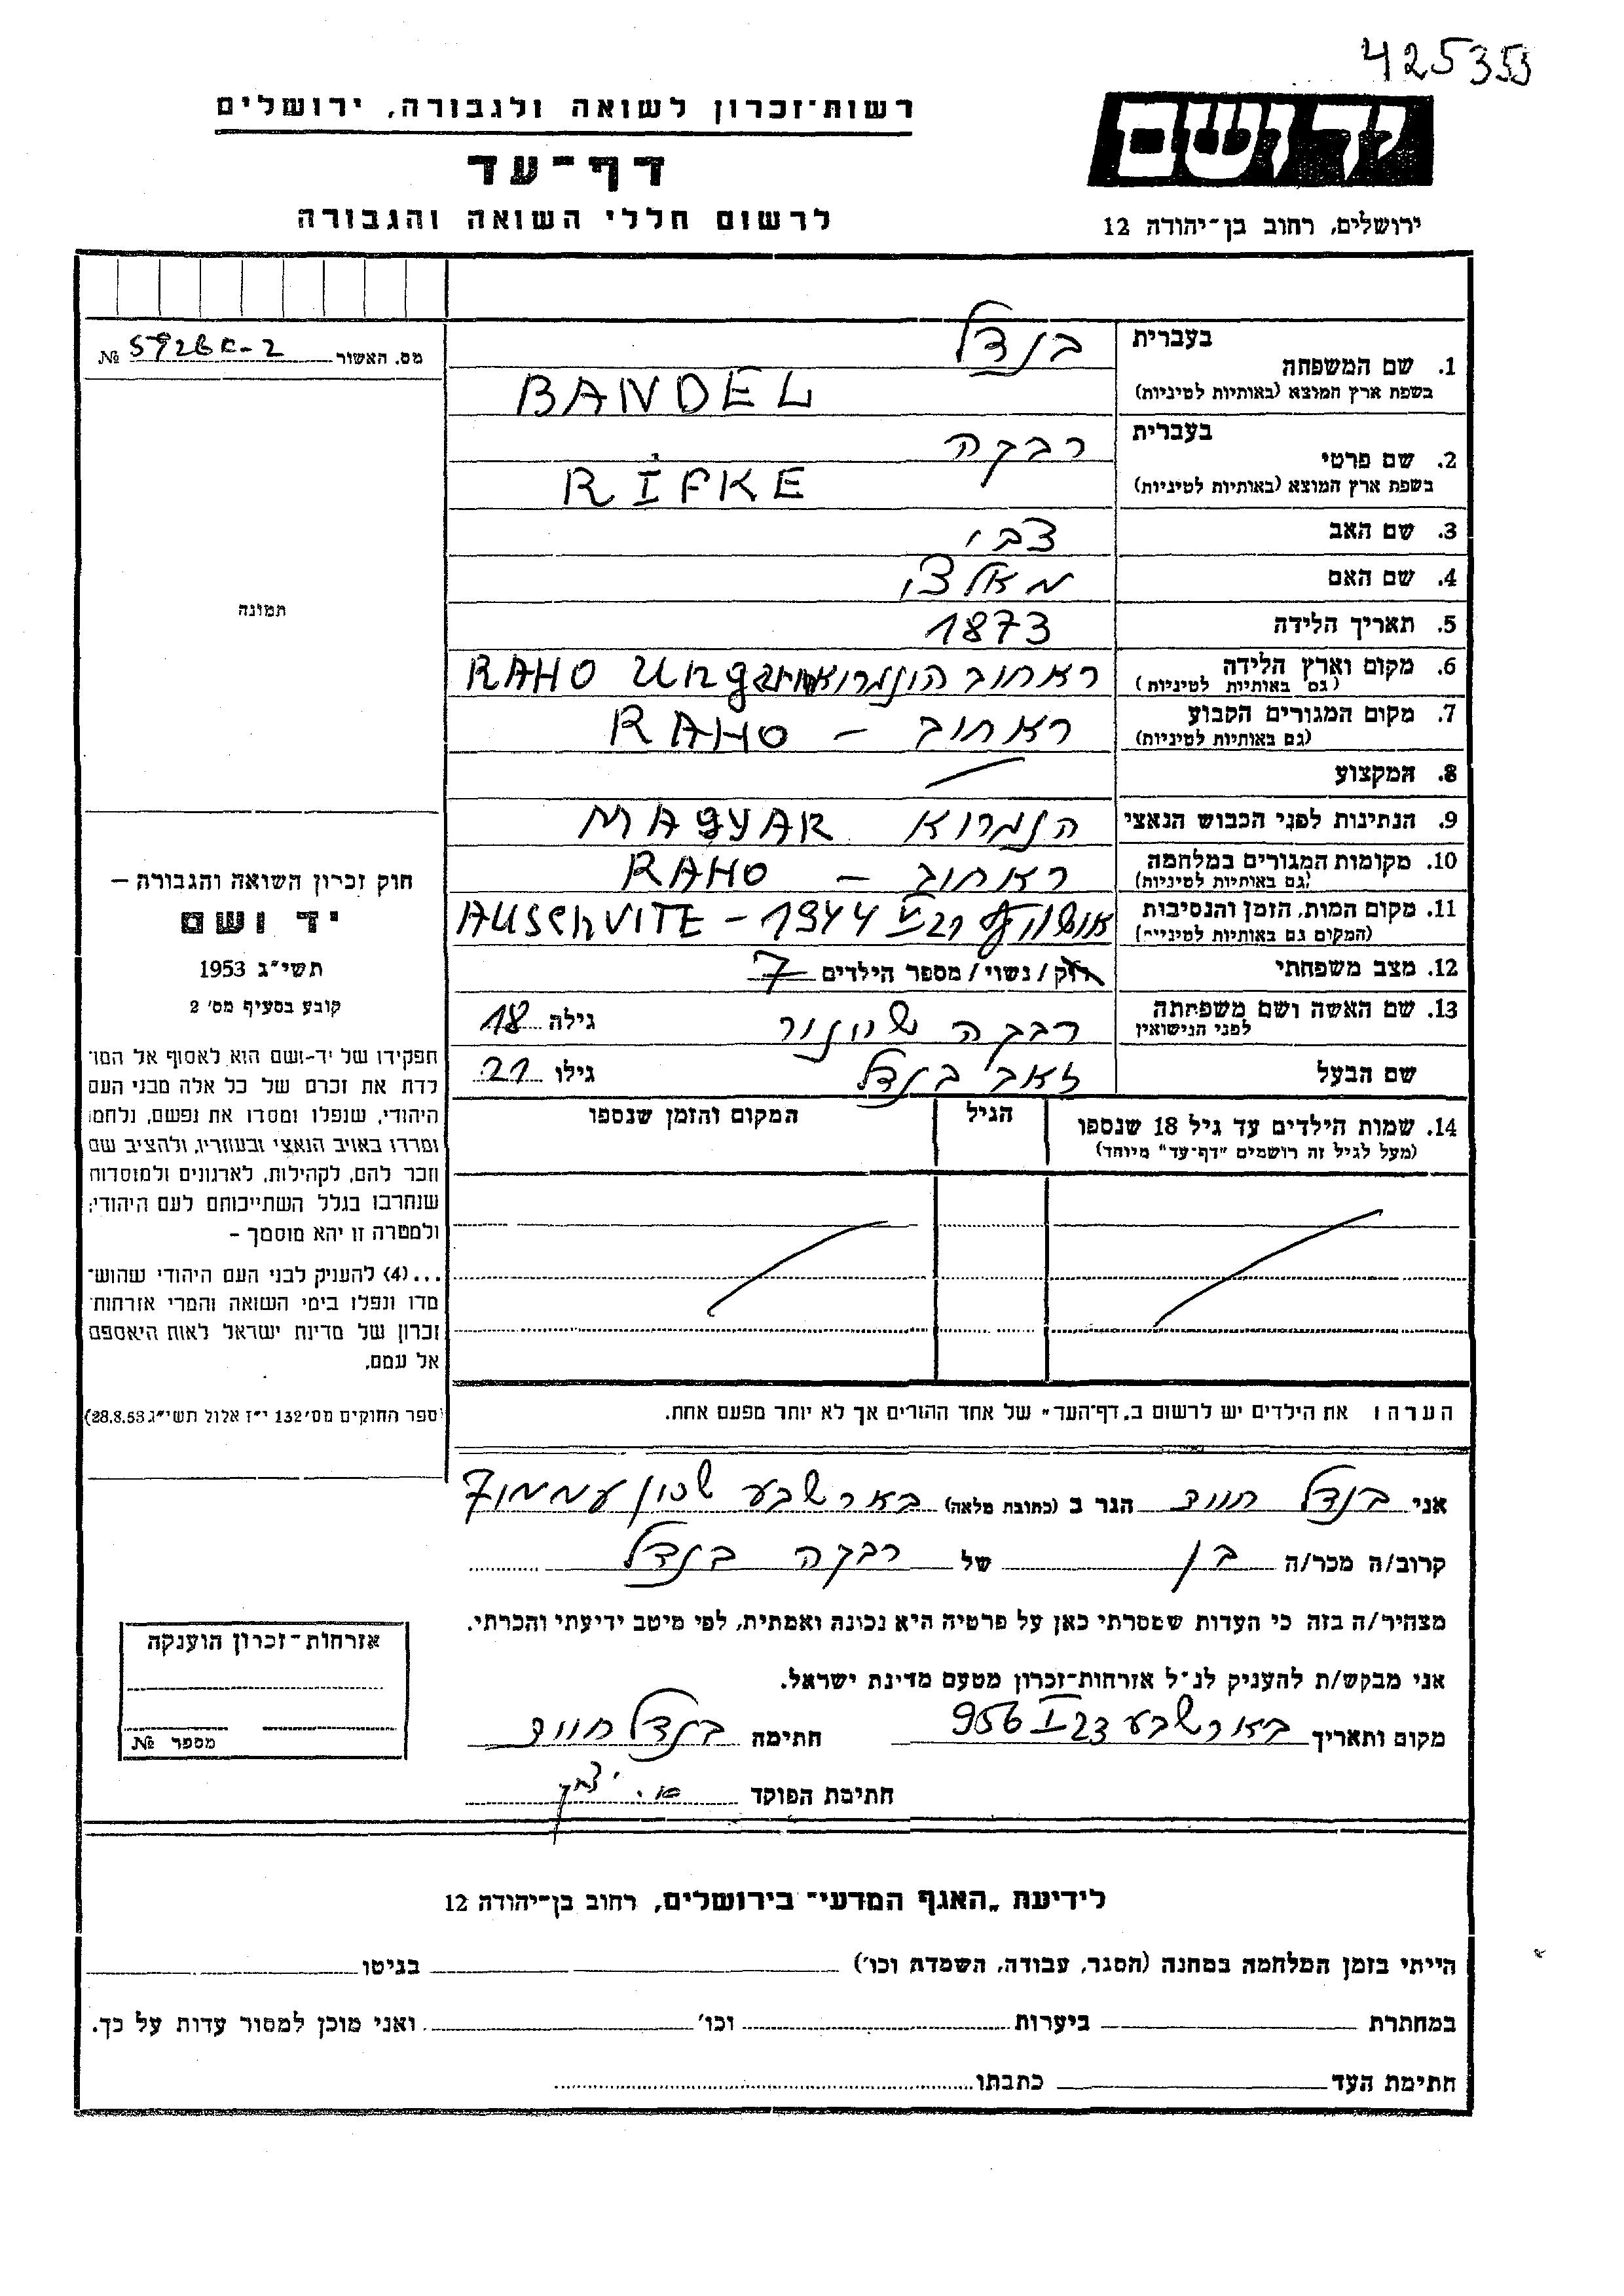 425353
רשות־זכרון לשואה ולגבורה, ירושלים
יד ושם
דף־עד
לרשום חללי השואה והגבורה
ירושלים, רחוב בן־יהודה 12
מס. האשור №
בעברית בנדל
1. שם המשפחה
בשפת ארץ המוצא (באותיות לטיניות) BANDEL
בעברית רבקה
2. שם פרטי
בשפת ארץ המוצא (באותיות לטיניות) RIFKE
3. שם האב צבי
4. שם האם מאלצי
5. תאריך הלידה 1873
6. מקום וארץ הלידה ראחוב RAHO
(גם באותיות לטיניות)
7. מקום המגורים הקבוע ראחוב – RAHO
(גם באותיות לטיניות)
8. המקצוע
9. הנתינות לפני הכבוש הנאצי הונגרוא MAGYAR
10. מקומות המגורים במלחמה ראחוב – RAHO
(גם באותיות לטיניות)
11. מקום המות, הזמן והנסיבות 1944 – AUSCHVITE
(המקום גם באותיות לטיניות)
12. מצב משפחתי רוק / נשוי / מספר הילדים 7
13. שם האשה ושם משפחתה רבקה גילה 18
לפני הנישואין
שם הבעל זאב בנדל גילו 21
14. שמות הילדים עד גיל 18 שנספו הגיל המקום והזמן שנספו
(מעל לגיל זה רושמים "דף־עד" מיוחד)
הערה: את הילדים יש לרשום ב„דף־העד" של אחד ההורים אך לא יותר מפעם אחת.
אני בנדל הגר ב (כתובת מלאה) באר שבע שכון
קרוב/ה מכר/ה בן של רבקה בנדל
מצהיר/ה בזה כי העדות שמסרתי כאן על פרטיה היא נכונה ואמתית, לפי מיטב ידיעתי והכרתי.
אני מבקש/ת להעניק לנ"ל אזרחות־זכרון מטעם מדינת ישראל.
מקום ותאריך באר שבע 23 I 956 חתימה בנדל
חתימת הפוקד
תמונה
חוק זכרון השואה והגבורה –
יד ושם
תשי"ג 1953
קובע בסעיף מס' 2
תפקידו של יד-ושם הוא לאסוף אל המו־
לדת את זכרם של כל אלה מבני העם
היהודי, שנפלו ומסרו את נפשם, נלחמו
ומרדו באויב הנאצי ובעוזריו, ולהציב שם
וזכר להם, לקהילות, לארגונים ולמוסדות
שנחרבו בגלל השתייכותם לעם היהודי;
ולמטרה זו יהא מוסמך –
...(4) להעניק לבני העם היהודי שהוש־
מדו ונפלו בימי השואה והמרי אזרחות־
זכרון של מדינת ישראל לאות היאספם
אל עמם.
(ספר החוקים מס' 132 י"ז אלול תשי"ג 28.8.53)
אזרחות־זכרון הוענקה
מספר №
לידיעת „האגף המדעי" בירושלים, רחוב בן־יהודה 12
הייתי בזמן המלחמה במחנה (הסגר, עבודה, השמדת וכו') בגיטו
במחתרת ביערות וכו' ואני מוכן למסור עדות על כך.
חתימת העד כתבתו